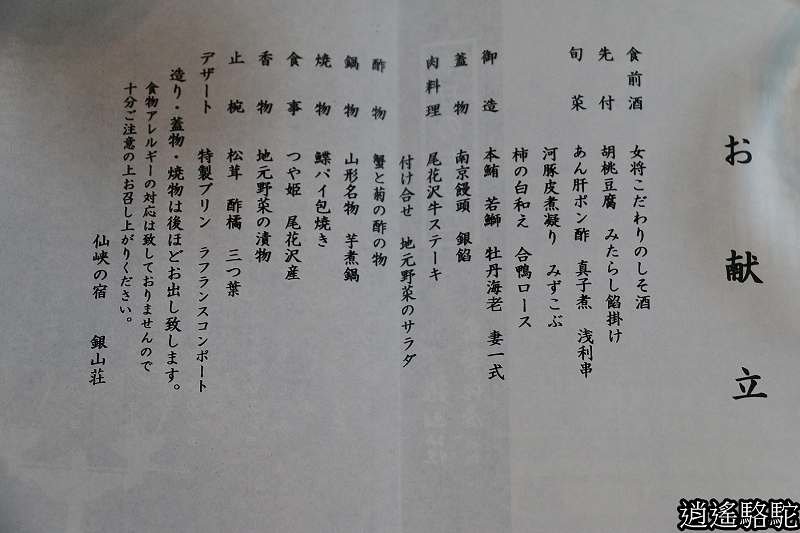 お献立
食前酒 女将こだわりのしそ酒
先付 胡桃豆腐 みたらし餡掛け
旬菜 あん肝ポン酢 真子煮 浅利串
河豚皮煮凝り みずこぶ
柿の白和え 合鴨ロース
御造 本鮪 若鰤 牡丹海老 妻一式
蓋物 南京饅頭 銀餡
肉料理 尾花沢牛ステーキ
付け合せ 地元野菜のサラダ
酢物 蟹と菊の酢の物
鍋物 山形名物 芋煮鍋
焼物 鰈パイ包焼き
食事 つや姫 尾花沢産
香物 地元野菜の漬物
止椀 松茸 酢橘 三つ葉
デザート 特製プリン ラフランスコンポート
造り・蓋物・焼物は後ほどお出し致します。
食物アレルギーの対応は致しておりませんので
十分ご注意の上お召し上がりください。
仙峡の宿 銀山荘
逍遙駱駝